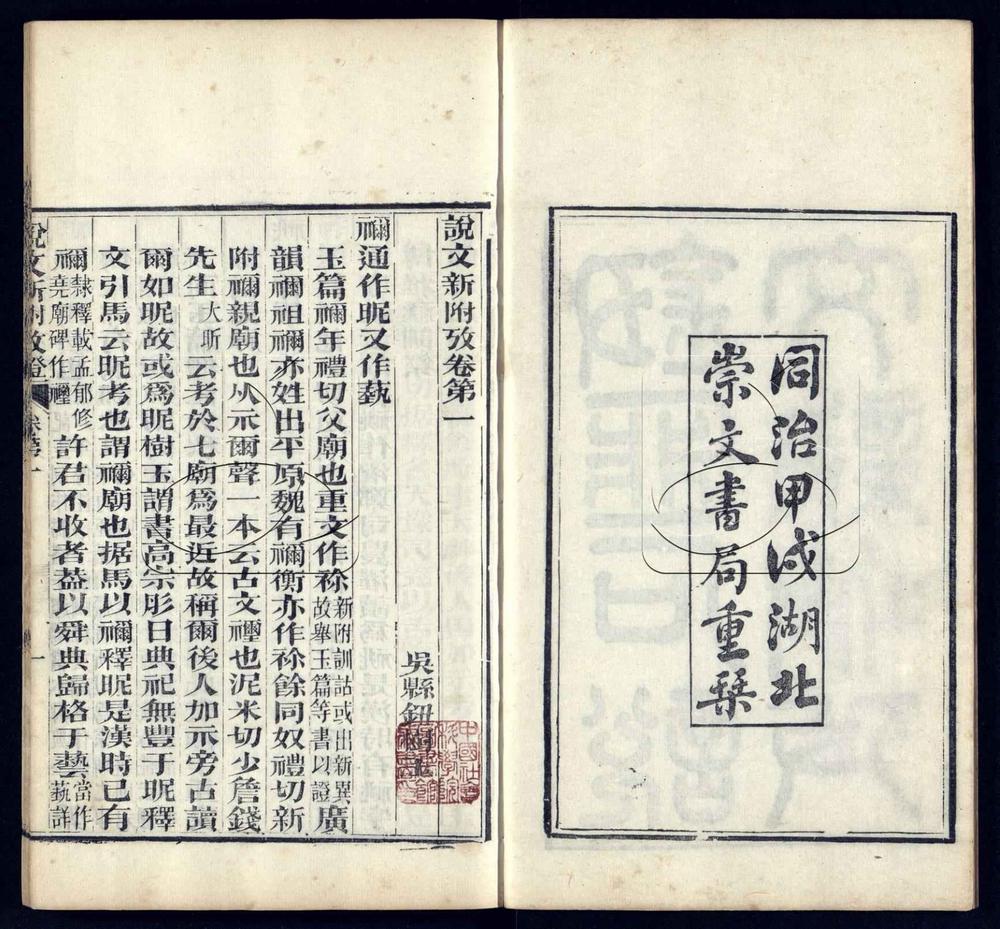 同治甲戌湖北
崇文書局重琹
說文新附攷卷第一
吳縣鈕樹玉
禰通作昵又作蓺
玉篇禰年禮切父廟也重文作祢新附訓詁或出新異故舉玉篇等書以證廣
韻禰祖禰亦姓出平原魏有禰衡亦作祢餘同奴禮切新
附禰親廟也从示爾聲一本云古文𥜬也泥米切少詹錢
先生大昕云考於七廟爲最近故稱爾後人加示旁古讀
爾如昵故或爲昵樹玉謂書高宗肜日典祀無豐于昵釋
文引馬云昵考也謂禰廟也据馬以禰釋昵是漢時已有
禰隸釋載孟郁修堯廟碑作𥜬許君不收者葢以舜典歸格于藝當作蓺詳
說文新附攷證 卷第一 一